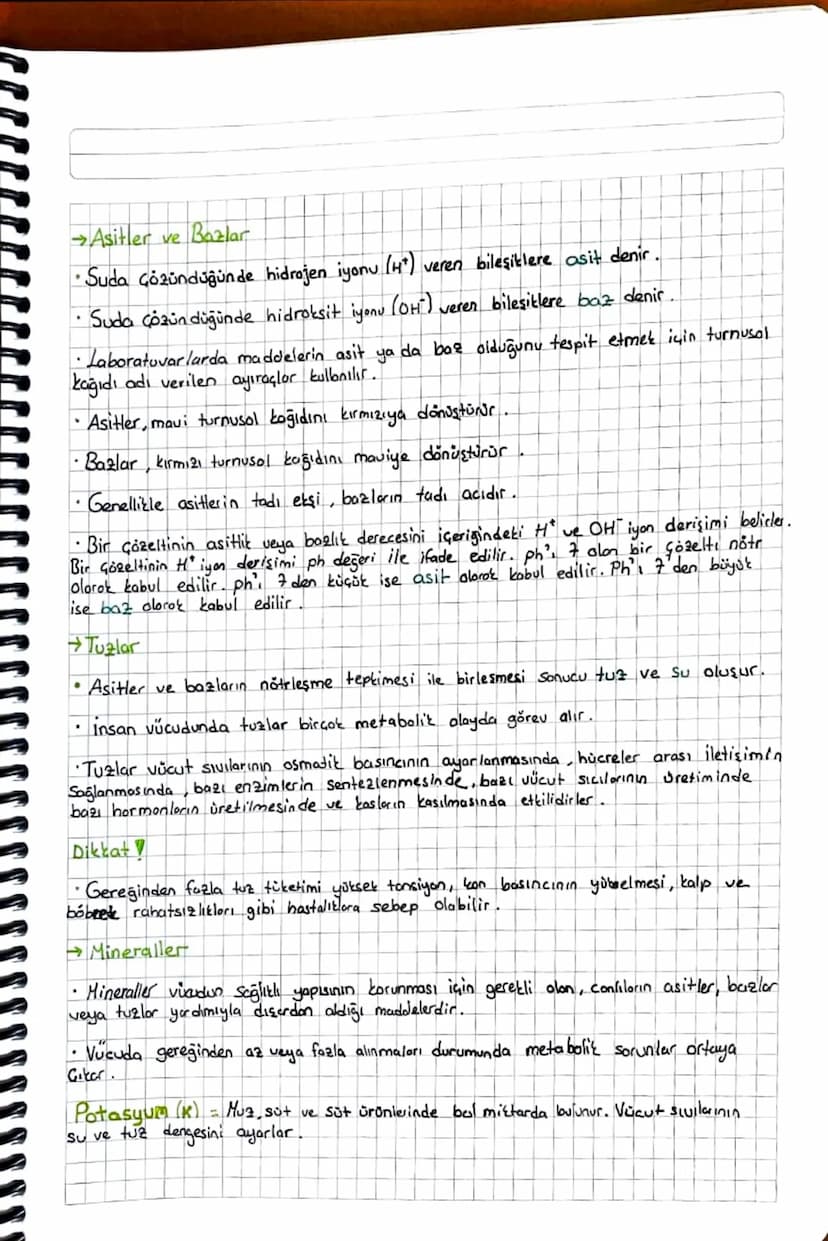 → Asitler ve Bazlar
· Suda çözündüğünde hidrojen iyonu (H⁺) veren bileşiklere asit denir.
· Suda çözündüğünde hidroksit iyonu (OH⁻) veren bileşiklere baz denir.
· Laboratuvarlarda maddelerin asit ya da baz olduğunu tespit etmek için turnusol
kağıdı adı verilen ayıraçlar kullanılır.
· Asitler, mavi turnusol kağıdını kırmızıya dönüştürür.
· Bazlar, kırmızı turnusol kağıdını maviye dönüştürür.
· Genellikle asitlerin tadı ekşi, bazların tadı acıdır.
· Bir çözeltinin asitlik veya bazlık derecesini içeriğindeki H⁺ ve OH⁻ iyon derişimi belirler.
Bir çözeltinin H⁺ iyon derişimi ph değeri ile ifade edilir. ph'ı 7 olan bir çözelti nötr
olarak kabul edilir. ph'ı 7 den küçük ise asit olarak kabul edilir. Ph'ı 7'den büyük
ise baz olarak kabul edilir.
→ Tuzlar
• Asitler ve bazların nötrleşme tepkimesi ile birleşmesi sonucu tuz ve su oluşur.
· İnsan vücudunda tuzlar birçok metabolik olayda görev alır.
· Tuzlar vücut sıvılarının osmatik basıncının ayarlanmasında, hücreler arası iletişimin
sağlanmasında, bazı enzimlerin sentezlenmesinde, bazı vücut sıcılarının üretiminde
bazı hormonların üretilmesinde ve kasların kasılmasında etkilidirler.
Dikkat!
· Gereğinden fazla tuz tüketimi yüksek tansiyon, kan basıncının yükselmesi, kalp ve
böbrek rahatsızlıkları gibi hastalıklara sebep olabilir.
→ Mineraller
· Mineraller vücudun sağlıklı yapısının korunması için gerekli olan, canlıların asitler, bazlar
veya tuzlar yardımıyla dışardan aldığı maddelerdir.
· Vücuda gereğinden az veya fazla alınmaları durumunda metabolik sorunlar ortaya
çıkar.
Potasyum (K) = Muz, süt ve süt ürünlerinde bol miktarda bulunur. Vücut sıvılarının
su ve tuz dengesini ayarlar.